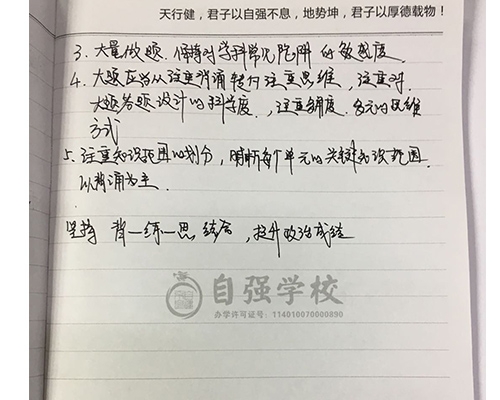 天行健，君子以自强不息，地势坤，君子以厚德载物！
3. 大量做题. 保持对学科常见陷阱的敏感度.
4. 大题应当从注重背诵转为注重思维，注重对
大题答题设计的科学度，注重角度. 多元的思维
方式
5. 注重知识范围的划分，明晰每个单元的关键知识范围.
以背诵为主.
坚持 背一练一思 结合，提升政治成绩
自强学校
办学许可证号：114010070000890